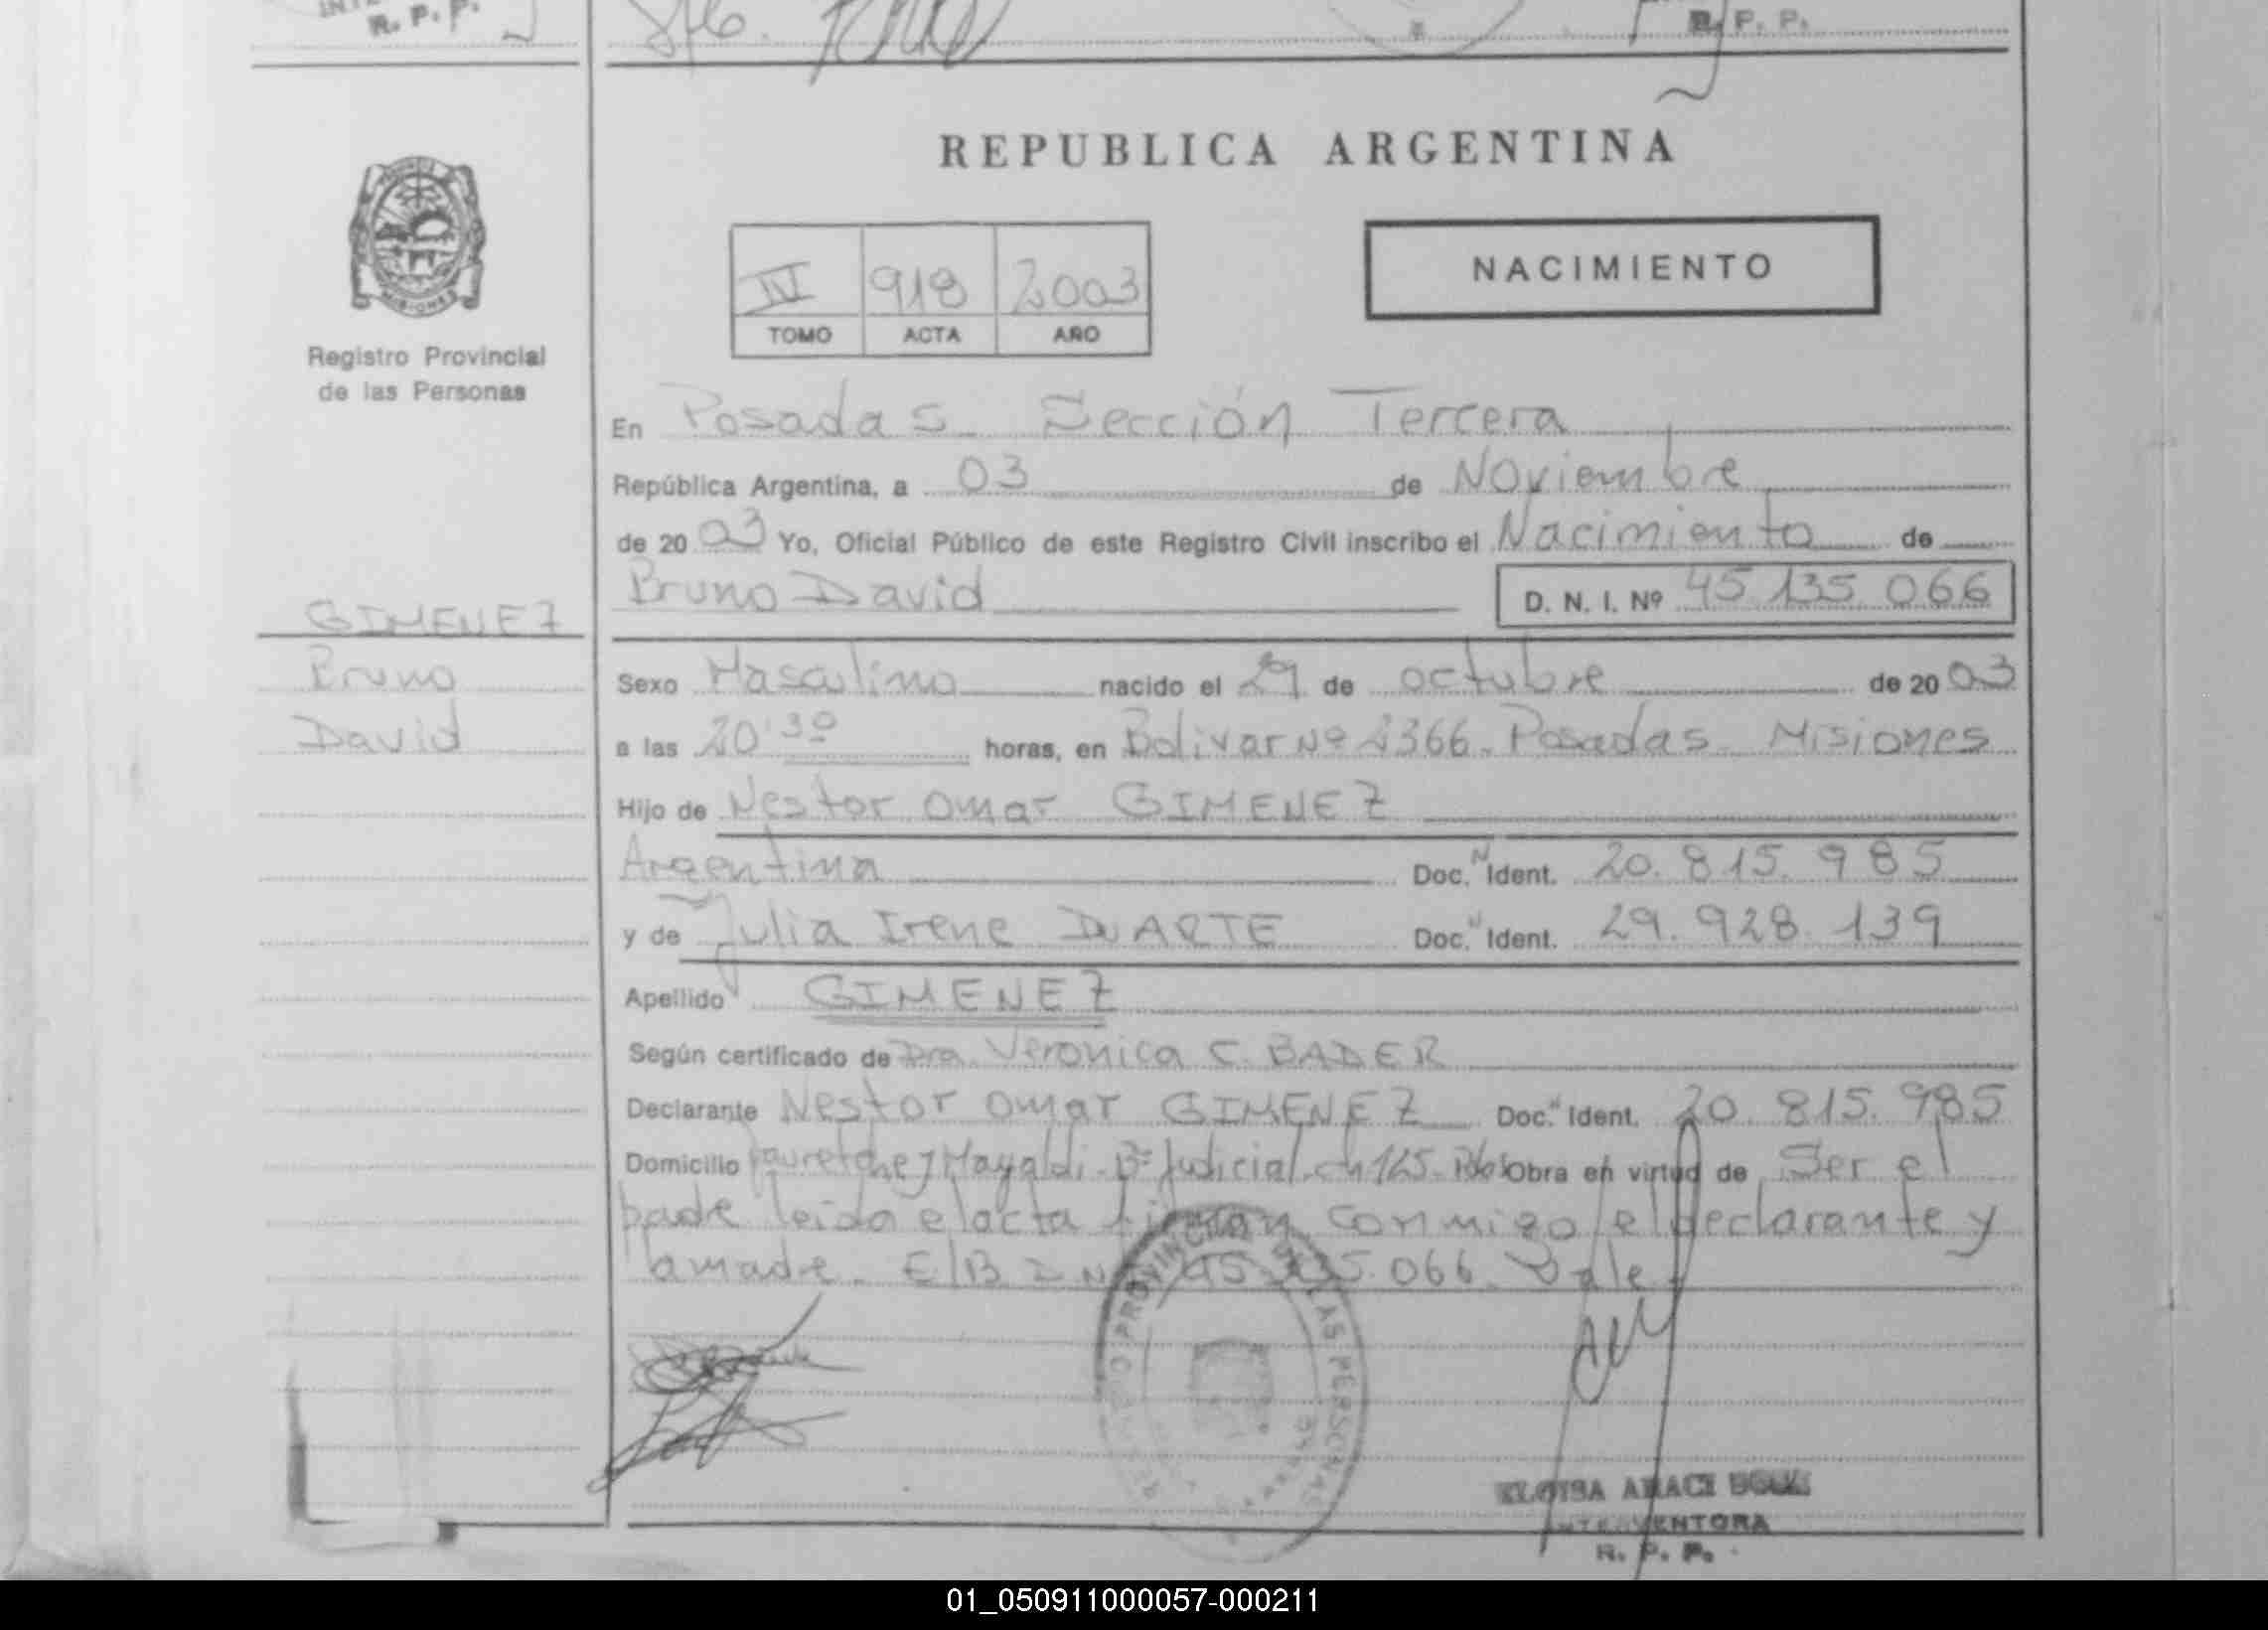 R. P. P.
R. P. P.
REPUBLICA ARGENTINA
NACIMIENTO
IV 918 2003
TOMO ACTA AÑO
Registro Provincial
de las Personas
En Posadas Sección Tercera
República Argentina, a 03 de Noviembre
de 20 03 Yo, Oficial Público de este Registro Civil inscribo el Nacimiento de
Bruno David D. N. I. Nº 45.135.066
GIMENEZ
Bruno
David
Sexo Masculino nacido el 29 de octubre de 20 03
a las 20 30 horas, en Bolivar Nº 2366. Posadas Misiones
Hijo de Nestor Omar GIMENEZ
Argentina Doc. N Ident. 20.815.985
y de Julia Irene DUARTE Doc. N Ident. 29.928.139
Apellido GIMENEZ
Según certificado de Dra. Veronica C. BADER
Declarante Nestor Omar GIMENEZ Doc. N Ident. 20.815.985
Domicilio Magaldi Judicial Obra en virtud de Ser el
padre leida el acta firman conmigo el declarante y
la madre. E/B DNI 45.135.066. Vale
PROVINCIAL DE LAS PERSONAS
ELOISA ARACI
INTERVENTORA
R. P. P.
01_050911000057-000211